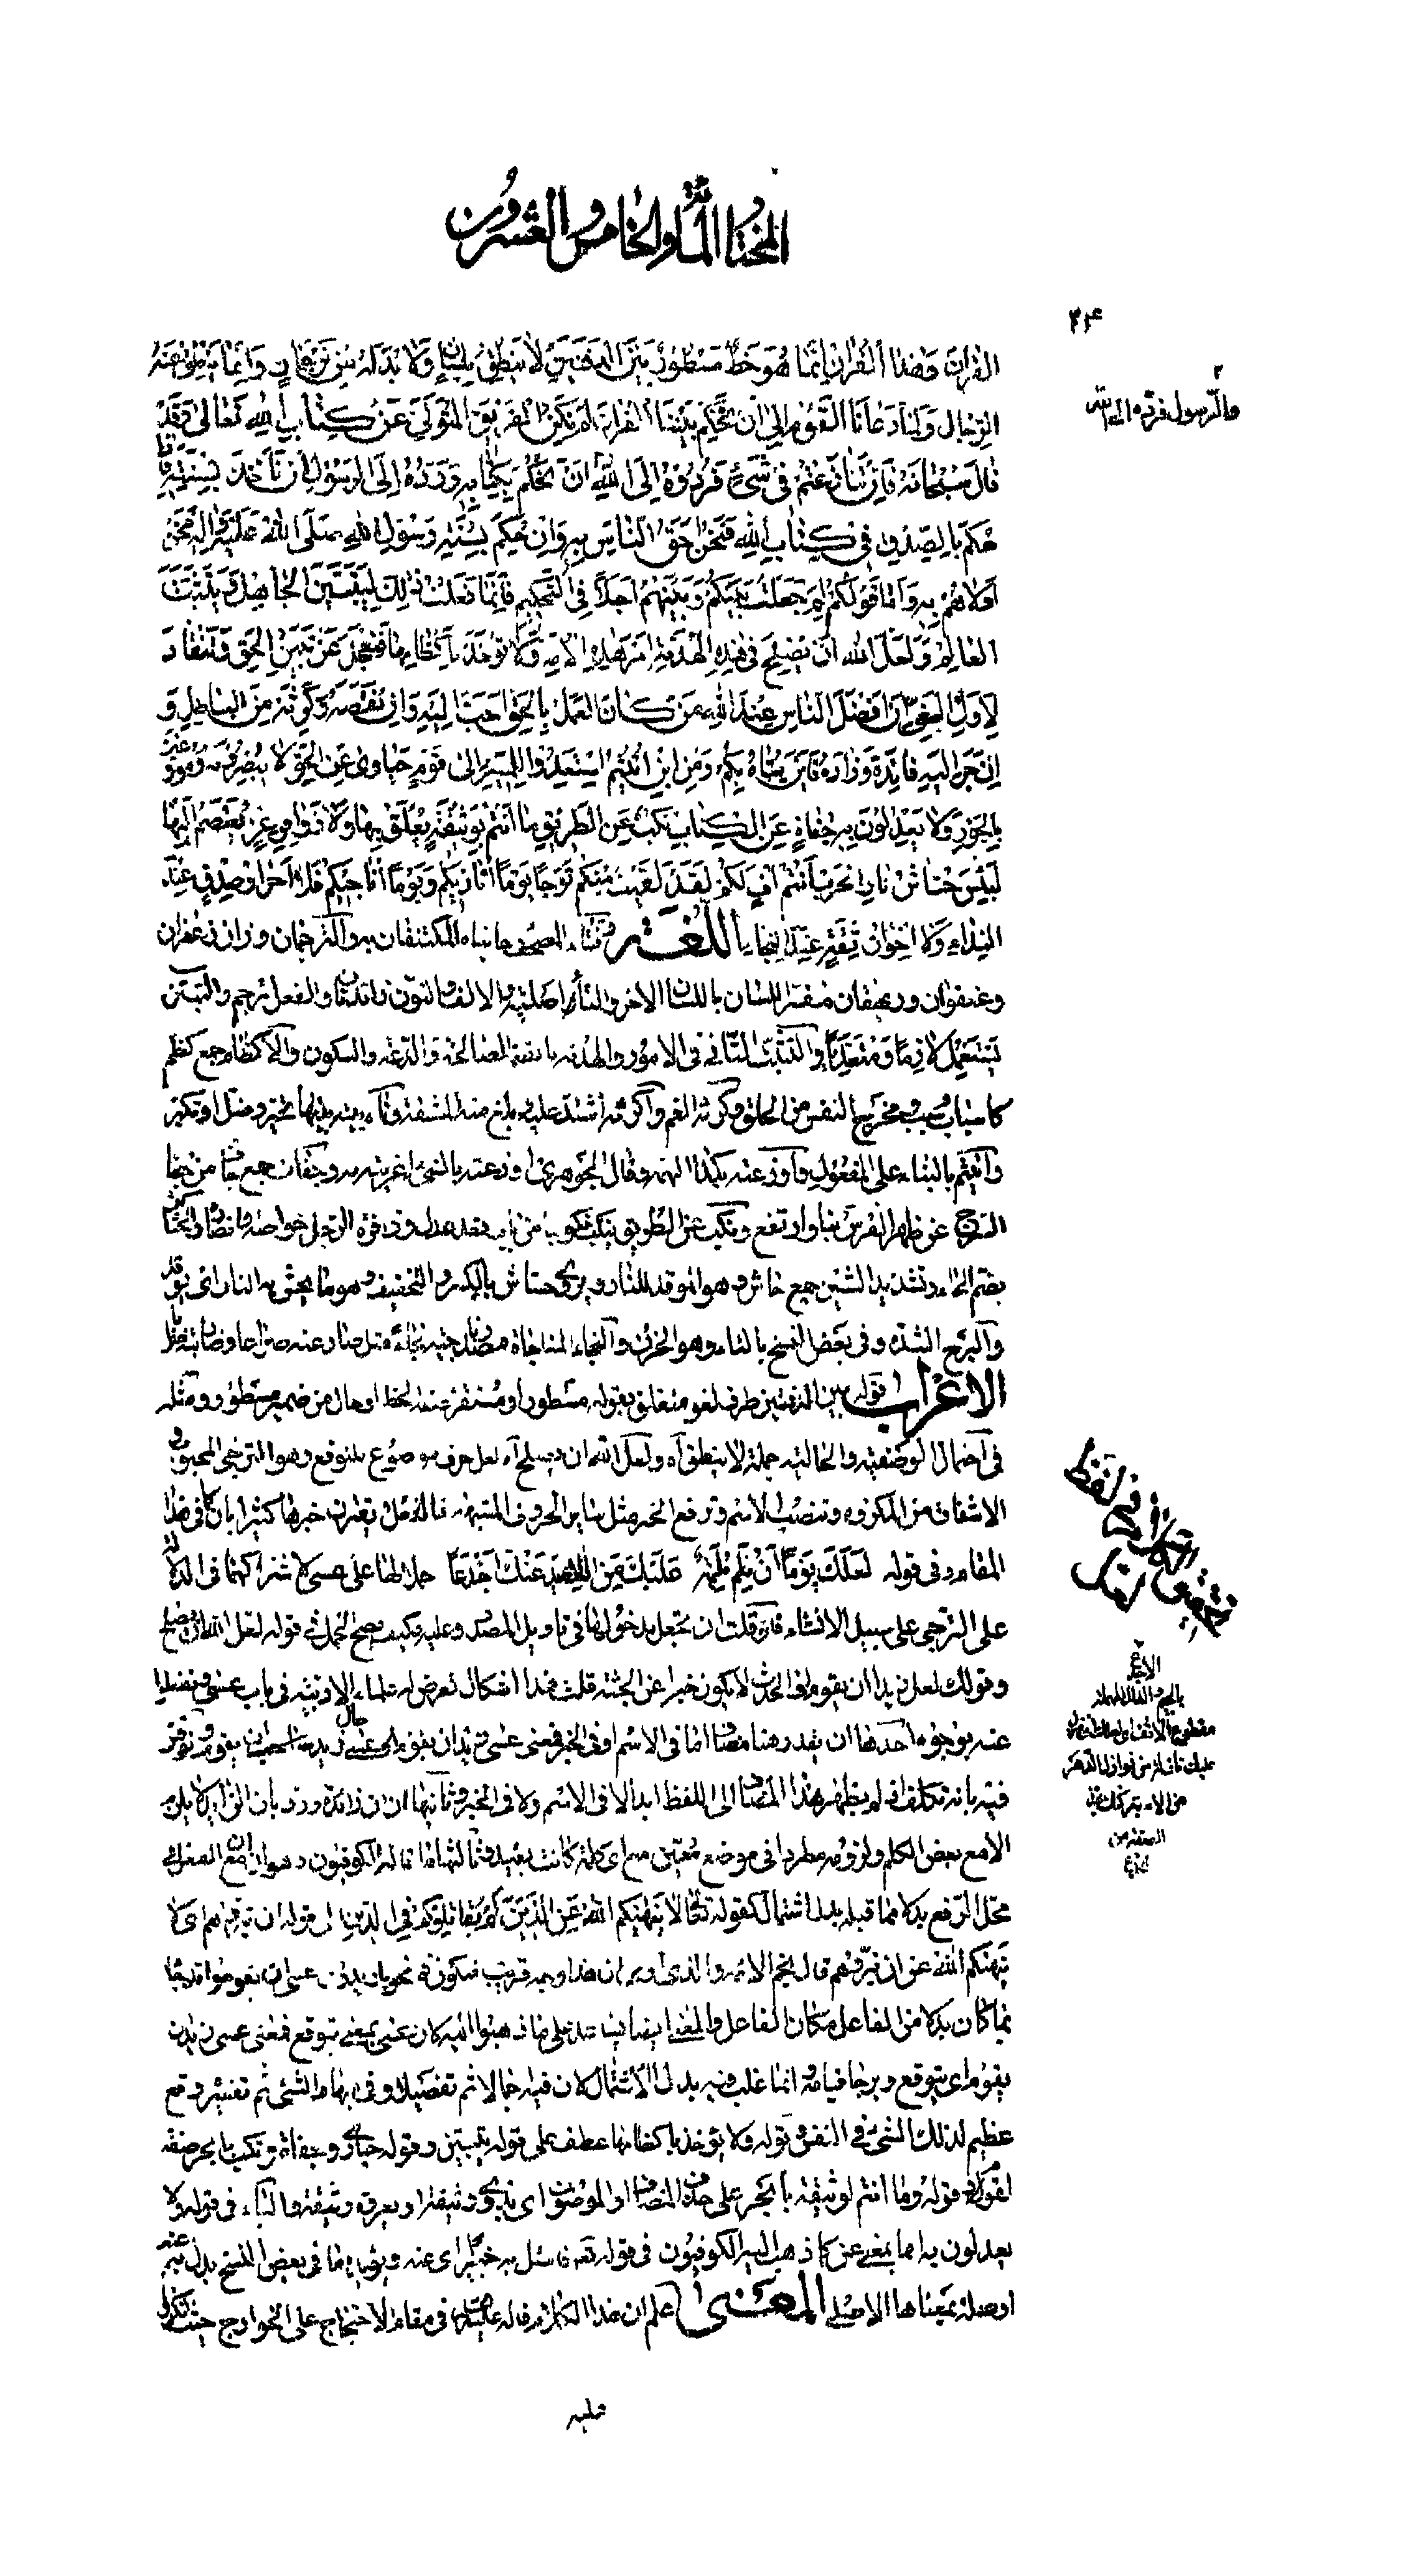 المختار المأة والخامس والعشرون
٢١٤
القران وهذا القران انما هو خط مستور بين الدفتين لا ينطق بلسان ولا بد له من ترجمان وانما ينطق عنه
الرجال ولما دعانا القوم الى ان نحكم بيننا القران لم نكن الفريق المتولى عن كتاب الله تعالى وقد
قال سبحانه فان تنازعتم فى شىء فردوه الى الله ان نحكم بكتابه ورده الى الرسول ان ناخذ بسنته فاذا
حكم بالصدق فى كتاب الله فنحن احق الناس به وان حكم بسنة رسول الله صلى الله عليه واله فنحن
اولاهم به واما قولكم لم جعلت بينكم وبينهم اجلا فى التحكيم فانما فعلت ذلك ليتبين الجاهل ويتثبت
العالم ولعل الله ان يصلح فى هذه الهدنة امر هذه الامة ولا تؤخذ باكظامها فتعجل عن تبين الحق وتنقاد
لاول الغى ان افضل الناس عند الله من كان العمل بالحق احب اليه وان نقصه وكرثه من الباطل و
ان جر اليه فائدة وزاده فاين يتاه بكم ومن اين اتيتم استعدوا للمسير الى قوم حيارى عن الحق لا يبصرونه وموزعين
بالجور ولا يعدلون به جفاة عن الكتاب نكب عن الطريق ما انتم بوثيقة يعلق بها ولا زوافر عز يعتصم اليها
لبئس حشاش نار الحرب انتم اف لكم لقد لقيت منكم ترحا يوما اناديكم ويوما اناجيكم فلا احرار صدق عند
النداء ولا اخوان ثقة عند النجاء اللغة دفتا المصحف جانباه المكتنفان به والترجمان وزان زعفران
وعنفوان وريهقان مفسر اللسان باللسان الاخر والتاء اصلية والالف والنون زائدتان والفعل ترجم والتبين
يستعمل لازما ومتعديا والتثبت التانى فى الامور والهدنة بالضم المصالحة والدعة والسكون والاكظام جمع كظم
كاسباب وسبب مخرج النفس من الحلق وكرثه الغم واكرثه اشتد عليه وبلغ منه المشقة وتاه يتيه تيها تحير وضل او تكبر
واتيتم بالبناء على المفعول واوزعته بكذا الهمته وقال الجوهرى اوزعته بالشىء اغريته به وجفات جمع جاف من جفا
السرج عن ظهر الفرس نبا وارتفع ونكب عن الطريق ينكب نكوبا من باب قعد عدل وزافرة الرجل خواصه وانصاره والحشاش كرمان
بضم الحاء وتشديد الشين جمع حاش وهو الموقد للنار ويروى حشاش بالكسر والتخفيف وهو ما يحش به النار اى يوقد
والبرح الشدة وفى بعض النسخ بالتاء وهو الحزن والنجاء المناجاة مصدر ناجيته نجاء مثل ضاربته ضرابا
الاعراب قوله بين الدفتين ظرف لغو متعلق بقوله مستور او مستقر صفة لخط او حال من ضمير مستور ومثله
فى احتمال الوصفية والحالية جملة لا ينطق آه ولعل الله ان يصلح آه لعل حرف موضوع للتوقع وهو الترجى المحبوب و
الاشفاق من المكروه وتنصب الاسم وترفع الخبر مثل ساير الحروف المشبهة بالفعل ويقترن خبرها كثيرا بان كما فى هذا
المقام وفى قوله لعلك يوما ان تلم ملمة عليك من اللائى يدعنك اجدعا حملا لها على عسى لاشتراكهما فى الدلالة
على الترجى على سبيل الانشاء فان قلت ان تجعل مدخولها فى تاويل المصدر وعليه فكيف يصح الحمل فى قوله لعل الله ان يصلح
وقولك لعل زيدا ان يقوم اذ الحدث لا يكون خبرا عن الجثة قلت هذا اشكال تعرض له علماء الادبية فى باب عسى وتفصيا
عنه بوجوه احدها ان يقدر هنا مضاف اما فى الاسم او فى الخبر فمعنى عسى زيد ان يقوم اى عسى حال زيد
فيه بانه تكلف اذ لم يظهر هذا المضاف الى اللفظ ابدا لا فى الاسم ولا فى الخبر وثانيها ان ان زائدة ورد بان الزائد لا يلزم
الا مع بعض الكلم ولزومه مطردا فى موضع معين مع اى كلمة كانت بعيد وثالثها ما قاله الكوفيون وهو ان ان مع الفعل فى
محل الرفع بدلا مما قبله بدل اشتمال كقوله تعالى لا ينهيكم الله عن الذين لم يقاتلوكم فى الدين الى قوله ان تبروهم اى لا
ينهيكم الله عن ان تبروهم قال نجم الائمة والذى ارى ان هذا وجه قريب فيكون فى نحو يا زيدون عسى ان تقوموا قد جاء
بما كان بدلا من الفاعل مكان الفاعل والمعنى ايضا يساعد على ما ذهبوا اليه لان عسى بمعنى يتوقع فمعنى عسى زيد ان
يقوم اى يتوقع ويرجا قيامه وانما غلب فيه بدل الاشتمال لان فيه اجمالا ثم تفصيلا وفى ابهام الشىء ثم تفسيره وقع
عظيم لذلك الشىء فى النفس وقوله ولا تؤخذ باكظامها عطف على قوله يتبين وقوله حيارى وجفاة ونكب بالجر صفة
لقوم وقوله وما انتم بوثيقة بالجر على حذف المضاف او الموصوف اى بذى وثيقة او بعروة وثيقة والباء فى قوله ولا
يعدلون به اما بمعنى عن كما ذهب اليه الكوفيون فى قوله تعالى فاسئل به خبيرا اى عنه ويؤيده ما فى بعض النسخ بدل به عنه
او صلة بمعناها الاصلى المعنى اعلم ان هذا الكلام قاله عليه السلام فى مقام الاحتجاج على الخوارج حيث انكروا
عليه
والرسول فردوه الى الله
الاجدع
بالجيم والدال المهملة
مقطوع الانف